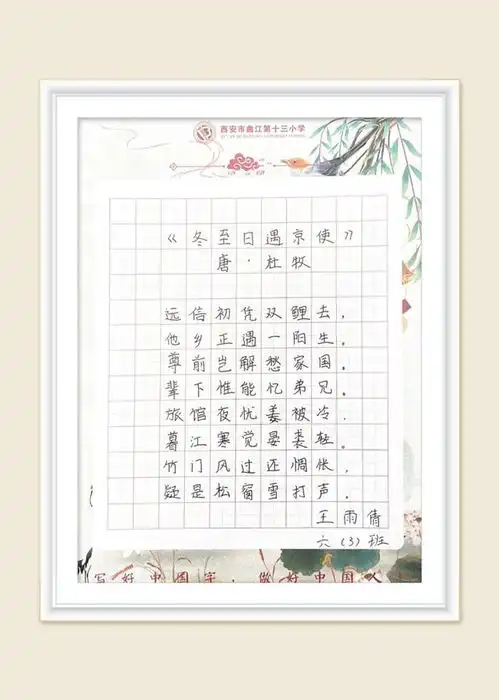 西安市曲江第十三小学
《冬至日遇京使》
唐·杜牧
远信初凭双鲤去,
他乡正遇一阳生。
尊前岂解愁家国,
辈下惟能忆弟兄。
旅馆夜忧姜被冷,
暮江寒觉晏裘轻。
竹门风过还惆怅,
疑是松窗雪打声。
王雨倩
六(3)班
写好中国字,做好中国人